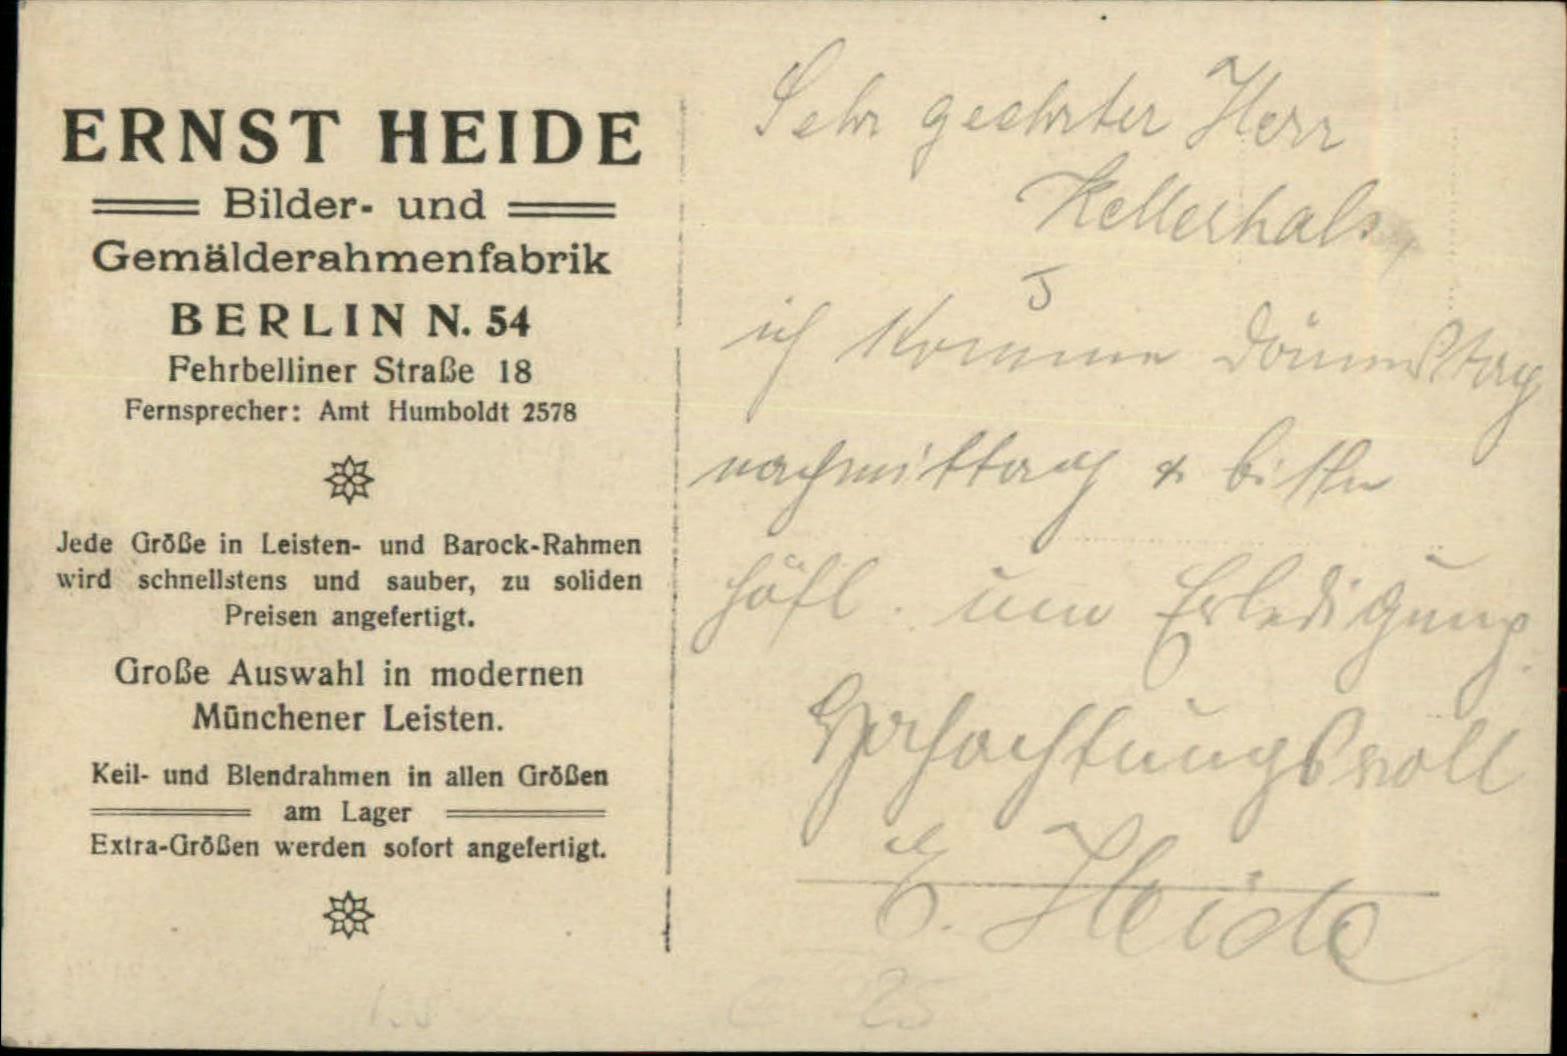 ERNST HEIDE
Bilder- und
Gemälderahmenfabrik
BERLIN N. 54
Fehrbelliner Straße 18
Fernsprecher: Amt Humboldt 2578
Jede Größe in Leisten- und Barock-Rahmen
wird schnellstens und sauber, zu soliden
Preisen angefertigt.
Große Auswahl in modernen
Münchener Leisten.
Keil- und Blendrahmen in allen Größen
am Lager
Extra-Größen werden sofort angefertigt.
Sehr geehrter Herr
Kellerhals,
ich komme
nachmittag & bitte
höfl. um Erledigung.
Hochachtungsvoll
E. Heide
25